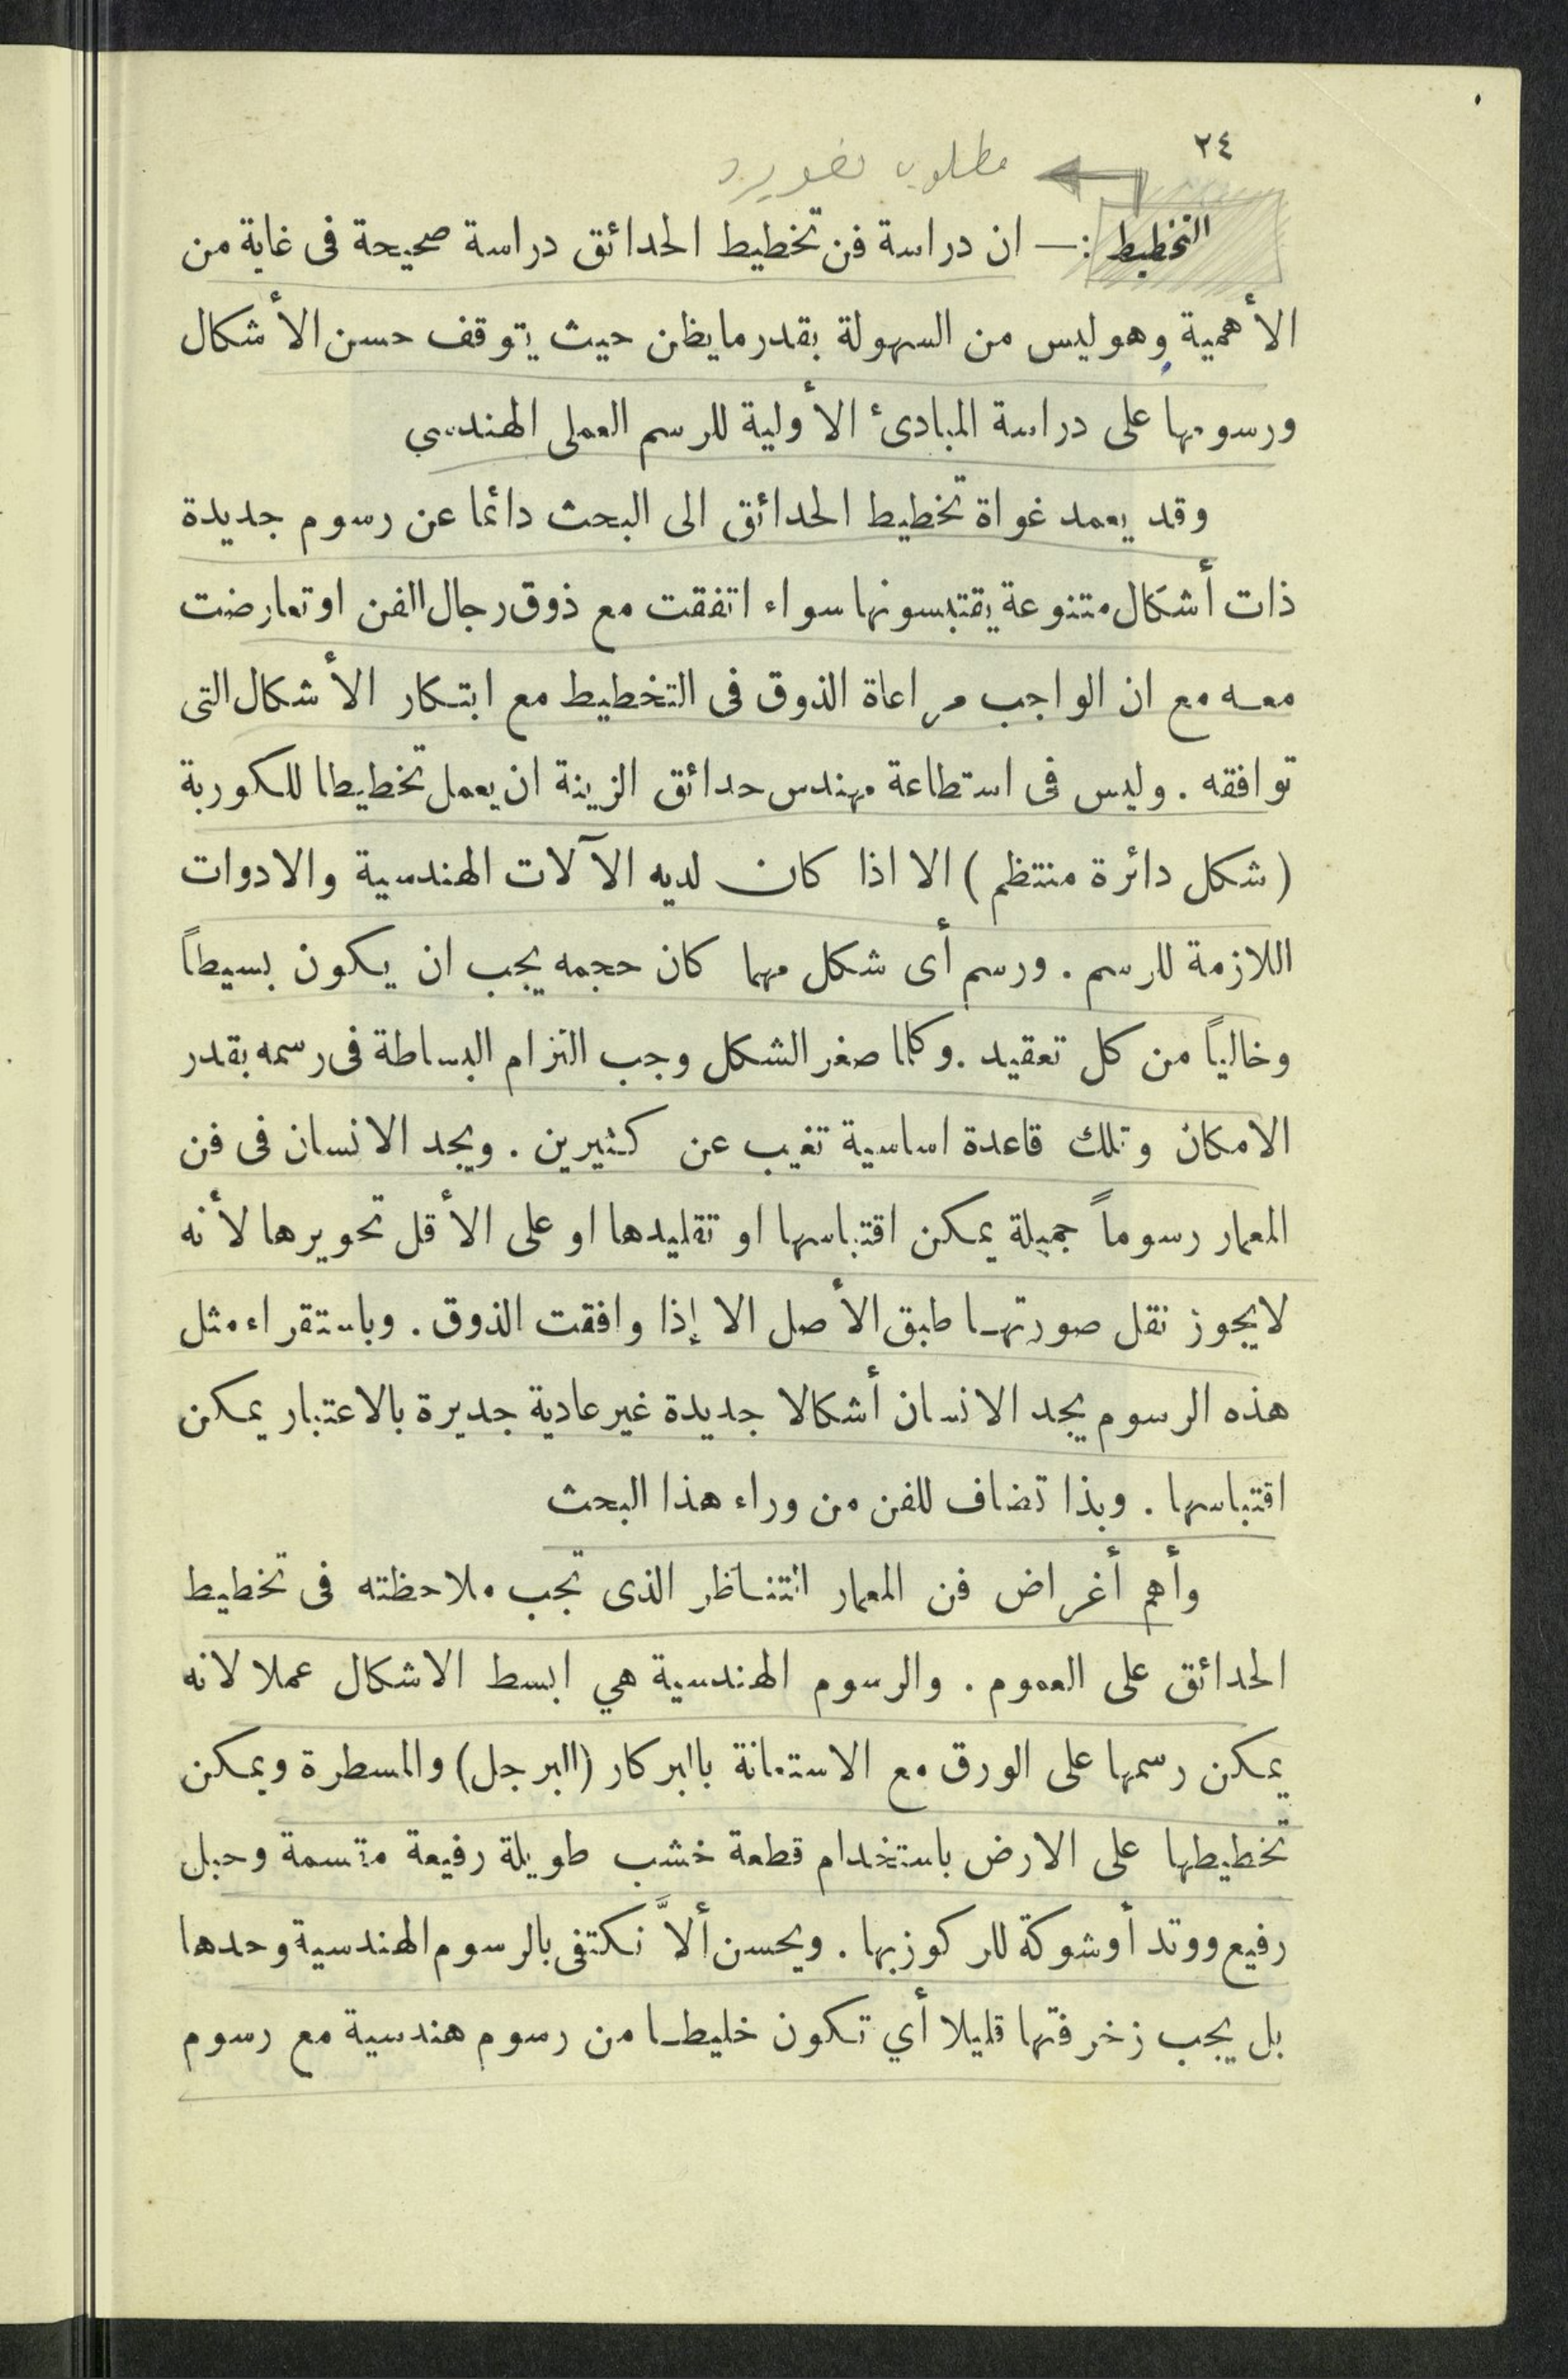 ٢٤
مطلوب
التخطيط :— ان دراسة فن تخطيط الحدائق دراسة صحيحة فى غاية من
الأهمية وهو ليس من السهولة بقدر ما يظن حيث يتوقف حسن الأشكال
ورسومها على دراسة المبادئ الأولية للرسم العملى الهندسي
وقد يعمد غواة تخطيط الحدائق الى البحث دائما عن رسوم جديدة
ذات أشكال متنوعة يقتبسونها سواء اتفقت مع ذوق رجال الفن او تعارضت
معه مع ان الواجب مراعاة الذوق فى التخطيط مع ابتكار الأشكال التى
توافقه . وليس فى استطاعة مهندس حدائق الزينة ان يعمل تخطيطا للكوربة
(شكل دائرة منتظم) الا اذا كان لديه الآلات الهندسية والادوات
اللازمة للرسم . ورسم أى شكل مهما كان حجمه يجب ان يكون بسيطاً
وخالياً من كل تعقيد . وكلما صغر الشكل وجب التزام البساطة فى رسمه بقدر
الامكان وتلك قاعدة اساسية تغيب عن كثيرين . ويجد الانسان فى فن
المعمار رسوماً جميلة يمكن اقتباسها او تقليدها او على الأقل تحويرها لأنه
لا يجوز نقل صورتها طبق الأصل الا إذا وافقت الذوق . وباستقراء مثل
هذه الرسوم يجد الانسان أشكالا جديدة غير عادية جديرة بالاعتبار يمكن
اقتباسها . وبذا تضاف للفن من وراء هذا البحث
وأهم أغراض فن المعمار التناظر الذى تجب ملاحظته فى تخطيط
الحدائق على العموم . والرسوم الهندسية هي ابسط الاشكال عملا لانه
يمكن رسمها على الورق مع الاستعانة بالبركار (البرجل) والمسطرة ويمكن
تخطيطها على الارض باستخدام قطعة خشب طويلة رفيعة مقسمة وحبل
رفيع ووتد أو شوكة للركوز بها . ويحسن ألاَّ نكتفى بالرسوم الهندسية وحدها
بل يجب زخرفتها قليلا أي تكون خليطا من رسوم هندسية مع رسوم